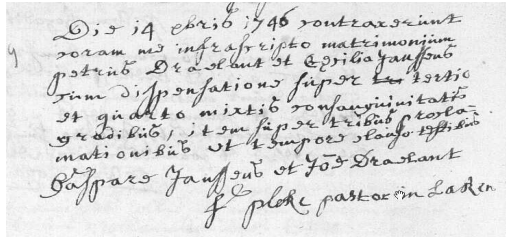 Die 14 xbris 1746 contraxerunt
coram me infrascripto matrimonium
petrus Draelant et Cecilia Janssens
cum dispensatione super tertio
et quarto mixtis consanguinitatis
gradibus, item super tribus procla-
mationibus et tempore clauso testibus
Gaspare Janssens et Joē Draelant
pastor in Laken